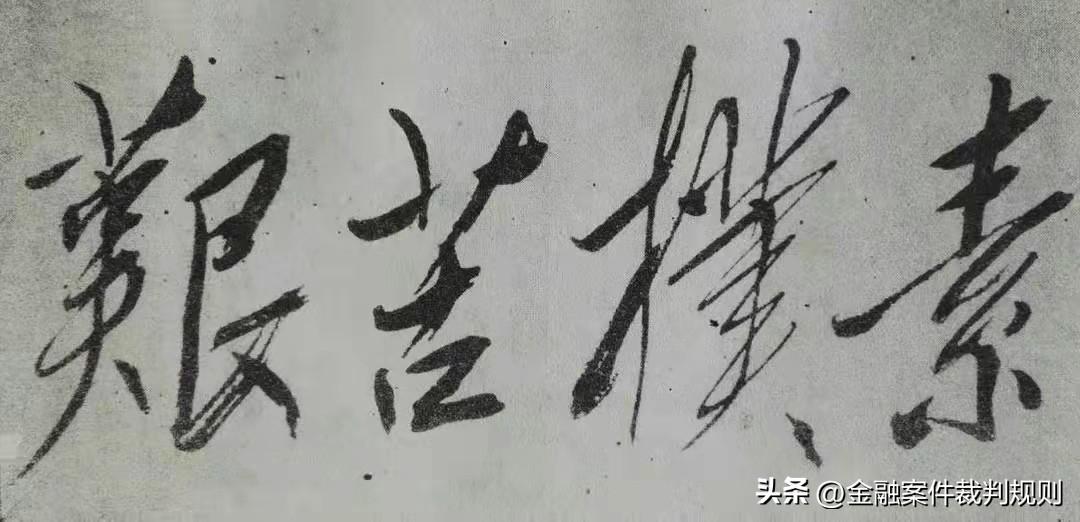 艱苦樸素
头条 @金融案件裁判规则